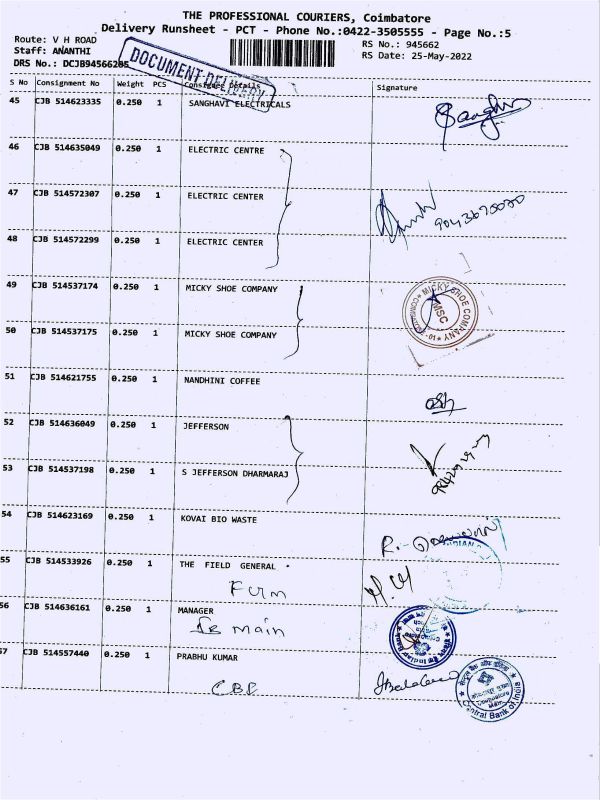 THE PROFESSIONAL COURIERS, Coimbatore
Delivery Runsheet - PCT - Phone No.:0422-3505555 - Page No.:5
Route: V H ROAD
RS No.: 945662
Staff: ANANTHI
RS Date: 25-May-2022
DRS No.: DCJB94566205
DOCUMENT DELIVERY
S No Consignment No Weight PCS Consignee Details Signature
45 CJB 514623335 0.250 1 SANGHAVI ELECTRICALS
46 CJB 514635049 0.250 1 ELECTRIC CENTRE
47 CJB 514572307 0.250 1 ELECTRIC CENTER
48 CJB 514572299 0.250 1 ELECTRIC CENTER
49 CJB 514537174 0.250 1 MICKY SHOE COMPANY
MICKY SHOE COMPANY
MSC
50 CJB 514537175 0.250 1 MICKY SHOE COMPANY
51 CJB 514621755 0.250 1 NANDHINI COFFEE
52 CJB 514636049 0.250 1 JEFFERSON
53 CJB 514537198 0.250 1 S JEFFERSON DHARMARAJ
54 CJB 514623169 0.250 1 KOVAI BIO WASTE
55 CJB 514533926 0.250 1 THE FIELD GENERAL
56 CJB 514636161 0.250 1 MANAGER
Main
Indian Bank
57 CJB 514557440 0.250 1 PRABHU KUMAR
Coimbatore
Main
Central Bank of India